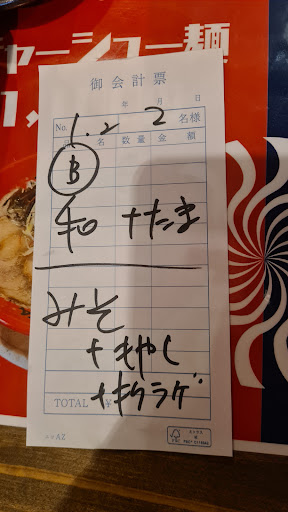 チャーシュー麺
御会計票
年 月 日
No. 1.2 2 名様
品名 数量 金額
B
和 +たま
みそ
+もやし
+キクラゲ
TOTAL ¥
FSC